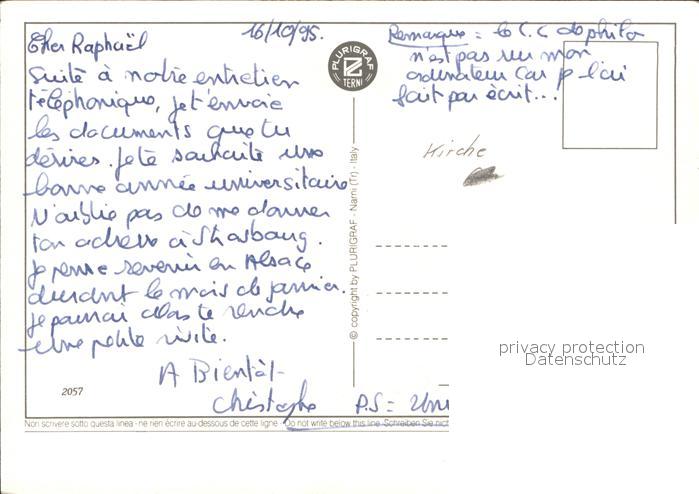 16/10/95.
Cher Raphaël
Suite à notre entretien
téléphonique, je t'envoie
les documents que tu
désires. Je te souhaite une
bonne année universitaire
N'oublie pas de me donner
ton adresse à Strasbourg.
Je pense revenir en Alsace
durant le mois de janvier.
Je pourrai alors te rendre
une petite visite.
A Bientôt
Christophe
P.S =
Remarque = le C.C de philo
n'est pas sur mon
ordinateur car je l'ai
fait par écrit...
Kirche
PLURIGRAF
TERNI
© copyright by PLURIGRAF - Narni (Tr) - Italy
privacy protection
Datenschutz
2057
Non scrivere sotto questa linea - ne rien écrire au-dessous de cette ligne - Do not write below this line - Schreiben Sie nicht